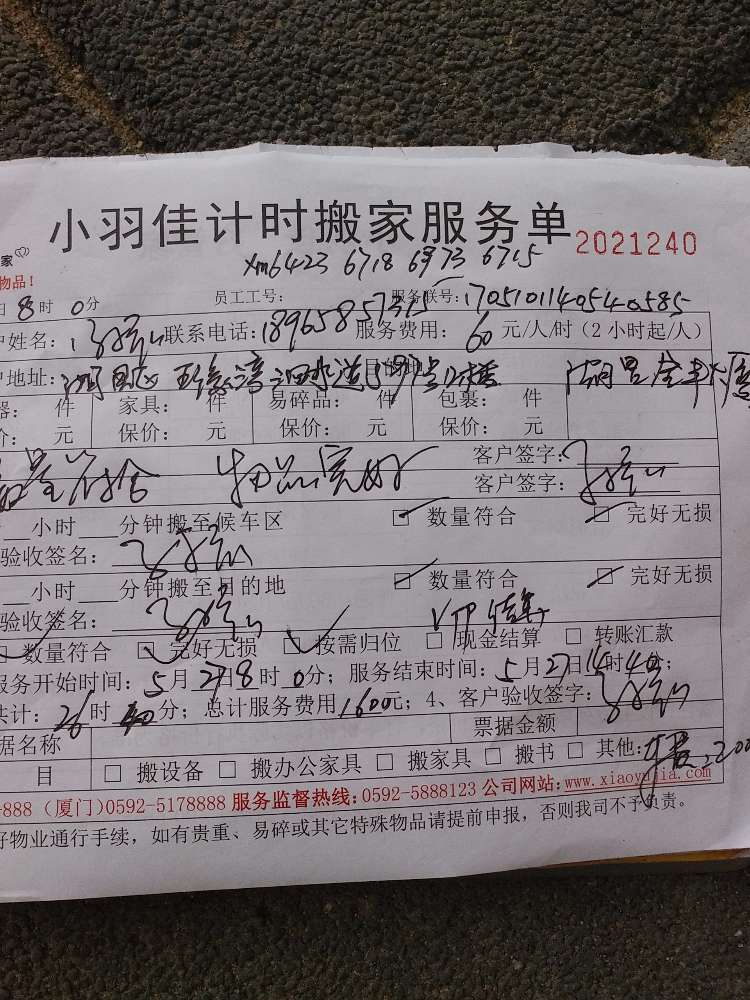 小羽佳计时搬家服务单 2021240
家
xm6423 6718 6973 6715
物品！
日 8 时 0 分 员工工号： 服务联号：170510114054 0585
户姓名： 联系电话：18965857315 服务费用：60 元/人/时（2小时起/人）
地址： 目的地
器： 件 家具： 件 易碎品： 件 包裹： 件
价： 元 保价： 元 保价： 元 保价： 元
数量符合 物品完好 客户签字：
客户签字：
小时 分钟搬至候车区 ☑ 数量符合 ☑ 完好无损
验收签名：
小时 分钟搬至目的地 ☑ 数量符合 ☑ 完好无损
验收签名：
VIP
数量符合 ☑ 完好无损 ☑ 按需归位 □ 现金结算 □ 转账汇款
服务开始时间：5月27日8时0分；服务结束时间：5月27日14时40分；
共计：26时40分；总计服务费用1600元；4、客户验收签字：
据名称 票据金额
目 □ 搬设备 □ 搬办公家具 □ 搬家具 □ 搬书 □ 其他：
-888（厦门）0592-5178888 服务监督热线：0592-5888123 公司网站：www.xiaoyujia.com
好物业通行手续，如有贵重、易碎或其它特殊物品请提前申报，否则我司不予负责。